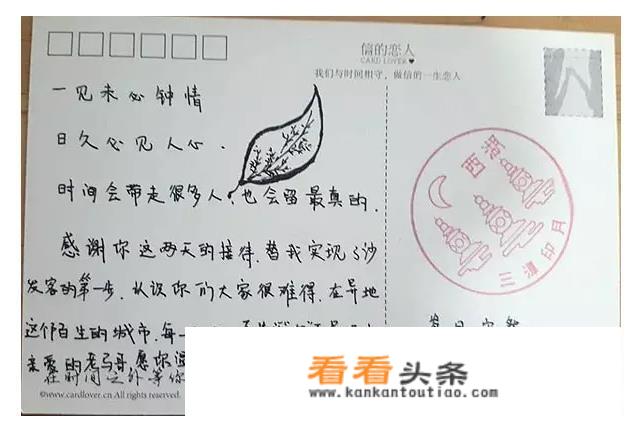 信的恋人
CARD LOVER♥
我们与时间相守，做信的一生恋人
一见未必钟情
日久必见人心.
时间会带走很多人,也会留最真的.
感谢你这两天的接待,替我实现了沙
发客的第一步.认识你们大家很难得.在异地
这个陌生的城市.每一
亲爱的老马哥.愿你
在时间之外等你
©www.cardlover.cn All rights reserved.
西湖
三潭印月
看看头条
www.kankantoutiao.com